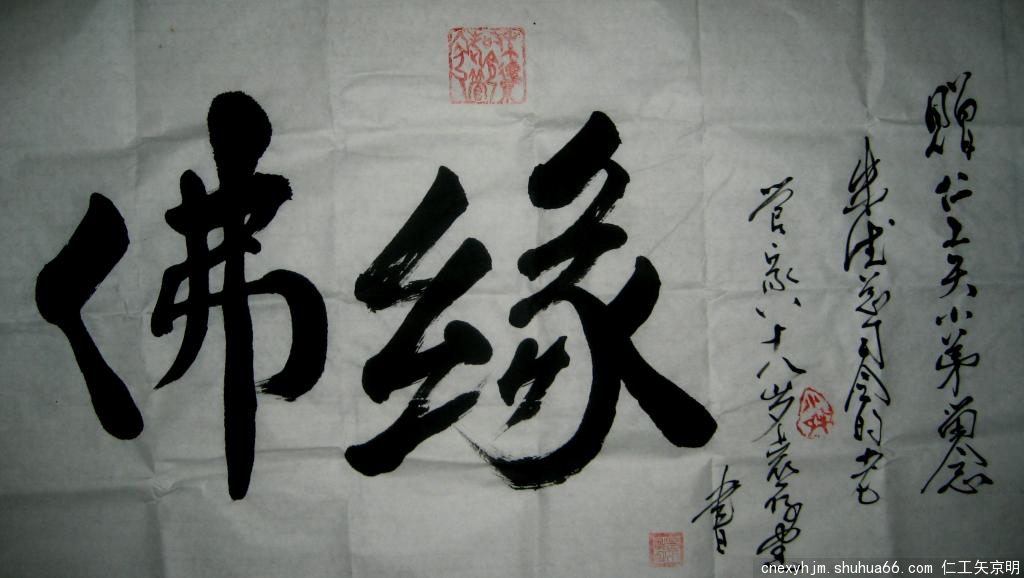 佛缘
赠仁工矢小弟留念
朱德总司令的
管家八十八岁
书
cnexyhjm.shuhua66.com 仁工矢京明